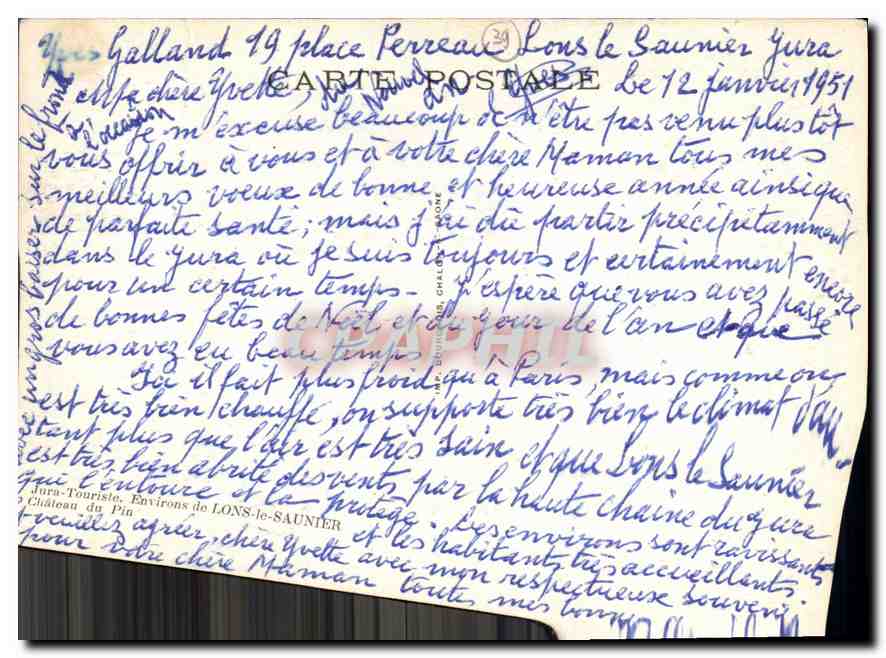 Yves Galland 19 place Perreau Lons le Saunier Jura
39
CARTE POSTALE
Le 12 janvier 1951
Ma chère Yvette,
Je m'excuse beaucoup de n'être pas venu plus tôt
vous offrir à vous et à votre chère Maman tous mes
meilleurs voeux de bonne et heureuse année ainsi que
de parfaite santé; mais j'ai dû partir précipitamment
dans le Jura où je suis toujours et certainement encore
pour un certain temps - J'espère que vous avez passé
de bonnes fêtes de Noël et du Jour de l'an et que
vous avez eu beau temps
Ici il fait plus froid qu'à Paris, mais comme on
est très bien chauffé, on supporte très bien le climat d'au
tant plus que l'air est très sain et que Lons le Saunier
est très bien abrité des vents par la haute chaine du Jura
qui l'entoure et la protège. Les environs sont ravissants
et les habitants très accueillants.
veuillez agréer, chère Yvette avec mon respectueux souvenir
pour votre chère Maman toutes mes bonnes
un gros baiser sur le front
à l'occasion
nouvel an
Jura-Touriste. Environs de LONS-le-SAUNIER
Château du Pin
IMP. BOURGEOIS, CHALON-S-SAONE
CPAPHIL